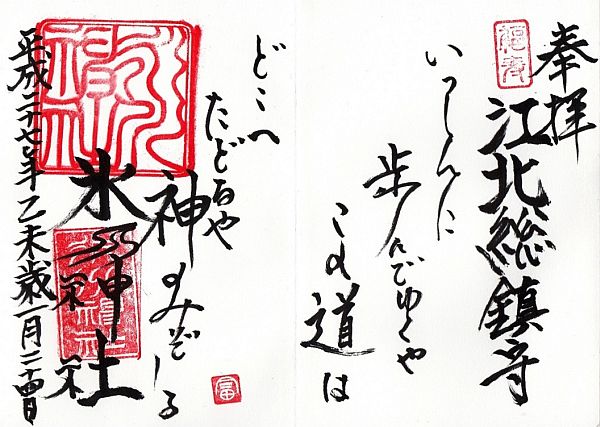 奉拝
福寿
江北総鎮守
いっしんに
歩んでゆくや
この道は
どこへ
たどるや
神のみぞしる
氷川神社
平成二十七年乙未歳一月二十四日